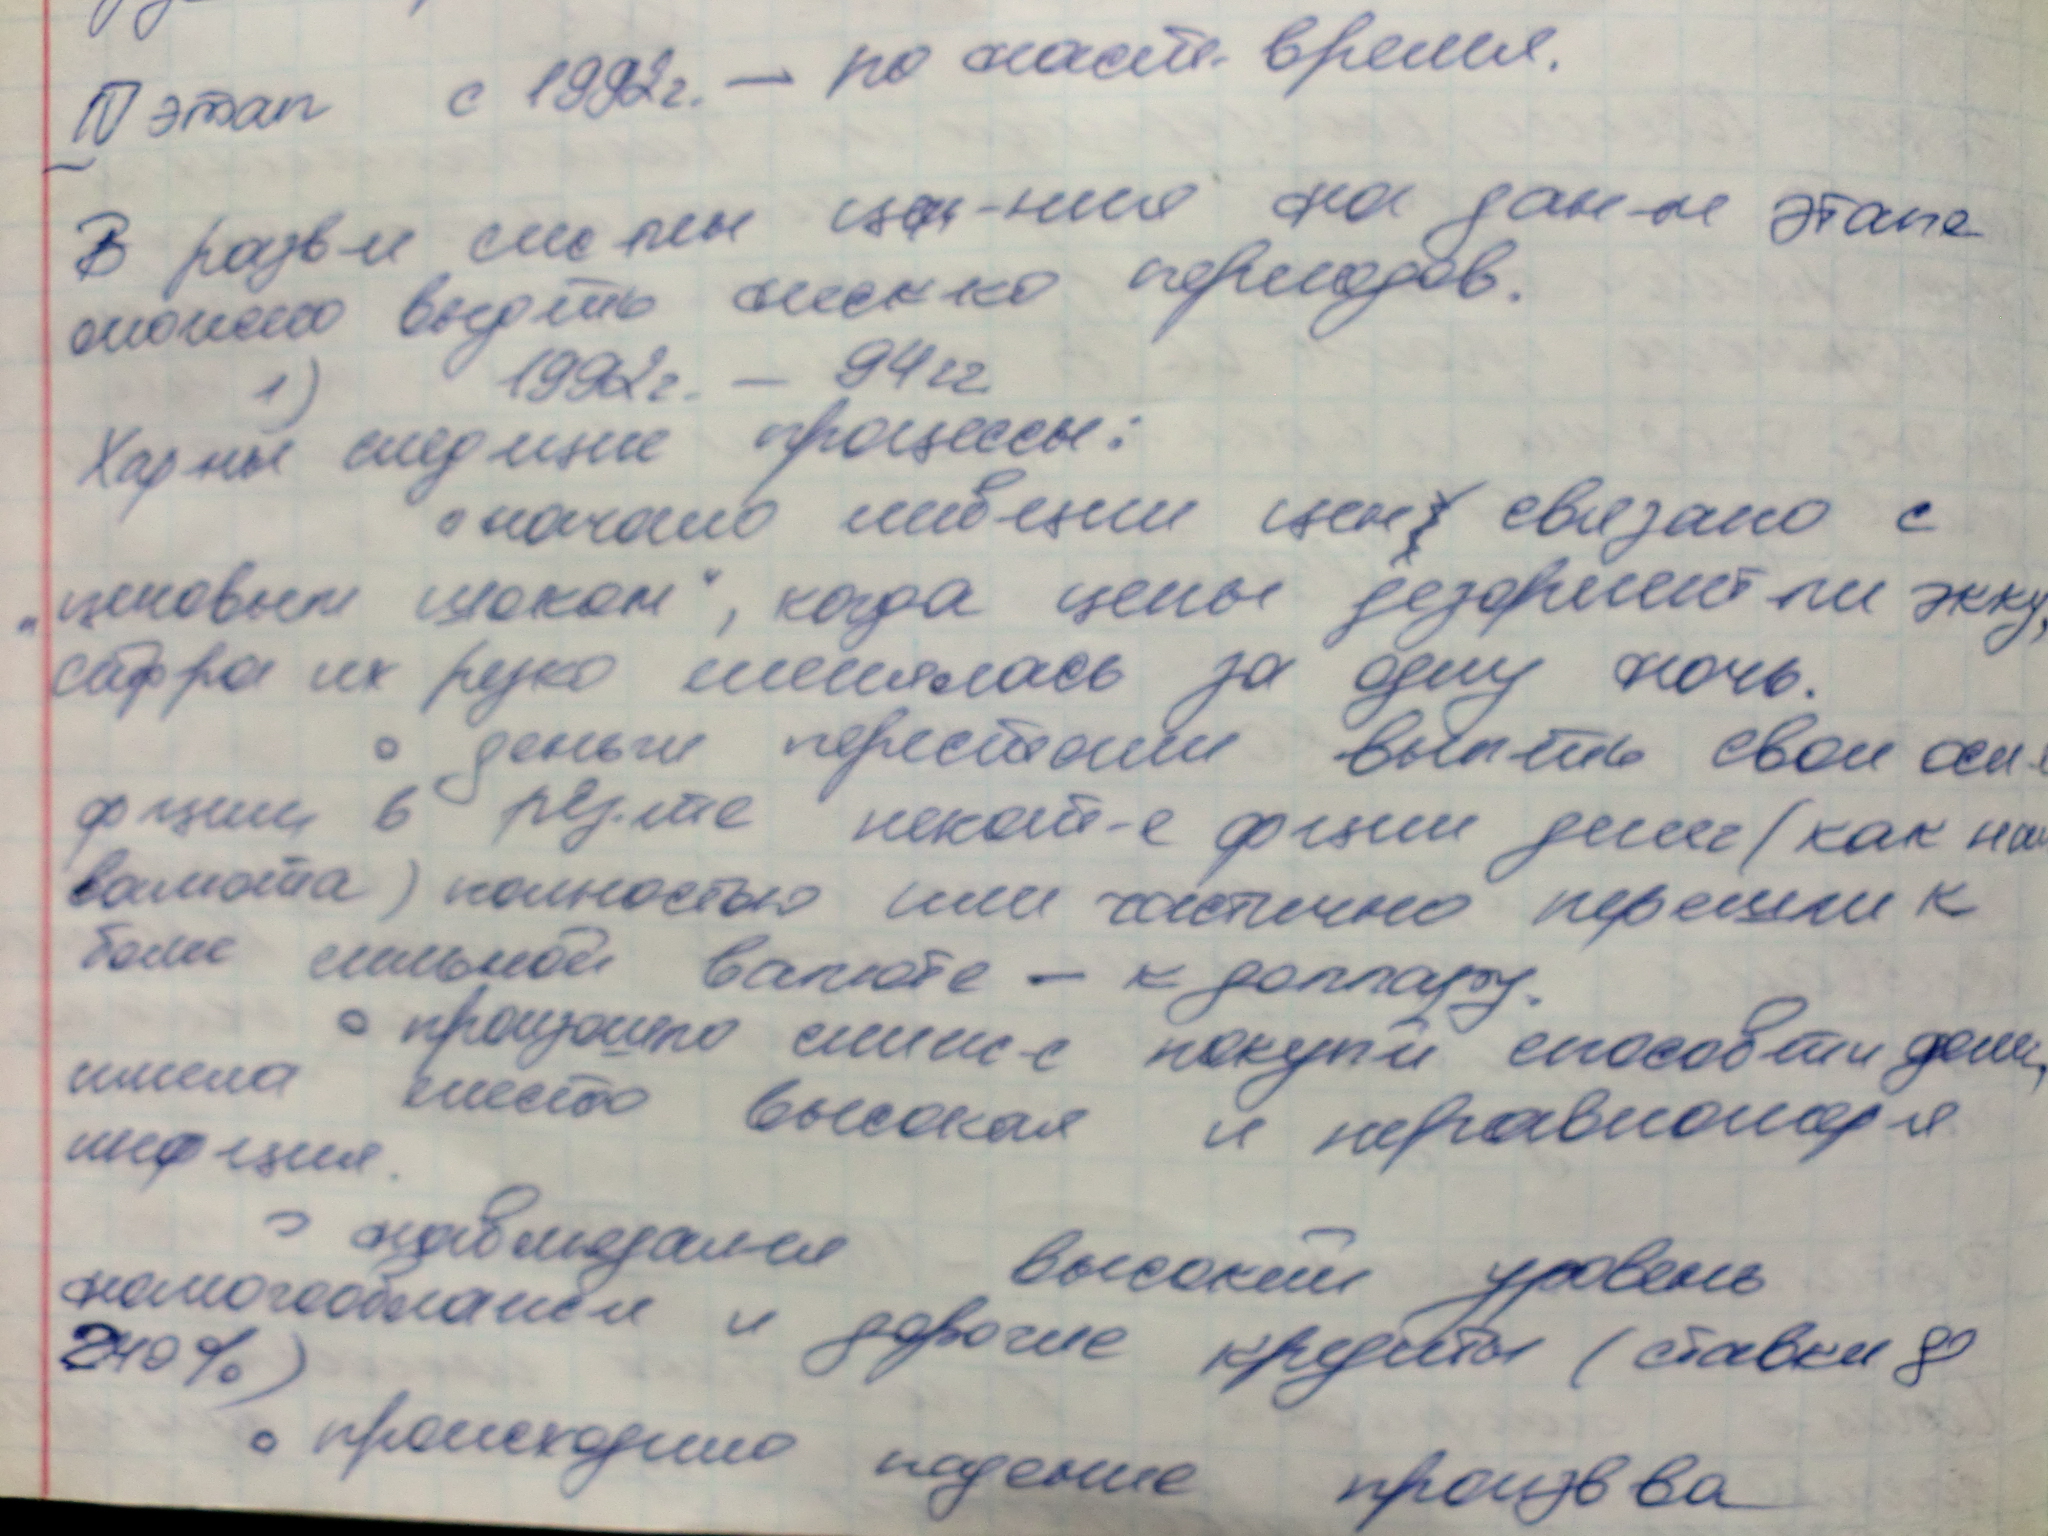 IV этап с 1992г. — по наст. время.
В разв-и сис-мы цен-ния на дан-м этапе
можно выд-ть неск-ко периодов.
1) 1992г. — 94гг
Хар-ны след-щие процессы:
начало либ-ции цен, связано с
„ценовым шоком", когда цены дезориент-ли эк-ку,
их резко менялась за одну ночь.
деньги перестали вып-ть свои осн.
ф-ции, в рез-те некот-е ф-ции денег (как нац.
валюта) полностью или частично перешли к
более сильной валюте — к доллару.
произошло сниж-е покуп-й способ-ти денег,
имела место высокая и неравномер-я
инф-ция.
наблюдался высокий уровень
налогооблажен и дорогие кредиты (ставки до
240%)
происходило падение произв-ва